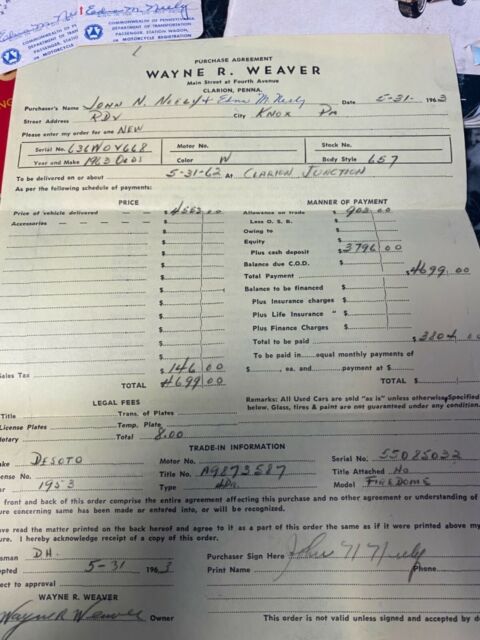 Edna M. Neely
COMMONWEALTH OF PENNSYLVANIA
DEPARTMENT OF TRANSPORTATION
PASSENGER, STATION WAGON,
OR MOTORCYCLE REGISTRATION
PURCHASE AGREEMENT
WAYNE R. WEAVER
Main Street at Fourth Avenue
CLARION, PENNA.
Purchaser's Name John N. Neely + Edna M. Neely Date 5-31- 1963
Street Address RD City Knox Pa
Please enter my order for one NEW
Serial No. Motor No. Stock No.
Year and Make 1963 Olds Color W Body Style 657
To be delivered on or about 5-31-62 At Clarion Junction
As per the following schedule of payments:
PRICE MANNER OF PAYMENT
Price of vehicle delivered $ 4553 00 Allowance on trade $ 903 00
Accessories Less O. S. B. $
Owing to $
Equity $
Plus cash deposit $ 3796 00
Balance due C.O.D. $
Total Payment $ 4699 00
Balance to be financed $
Plus Insurance charges $
Plus Life Insurance " $
Plus Finance Charges $
Total to be paid $ 3804 00
To be paid in equal monthly payments of
Sales Tax $ 146 00 $ , ea. and payment at $
TOTAL 4699 00 TOTAL $
LEGAL FEES Remarks: All Used Cars are sold "as is" unless otherwise specified
below. Glass, tires & paint are not guaranteed under any condition.
Title Trans. of Plates
License Plates Temp. Plate
Notary Total 8.00
TRADE-IN INFORMATION
ake DeSoto Motor No. Serial No. 55085032
ense No. Title No. A9873587 Title Attached No
ar 1953 Type 4Dr. Model Firedome
front and back of this order comprise the entire agreement affecting this purchase and no other agreement or understanding of
ure concerning same has been made or entered into, or will be recognized.
ave read the matter printed on the back hereof and agree to it as a part of this order the same as if it were printed above my
ure. I hereby acknowledge receipt of a copy of this order.
sman DH. Purchaser Sign Here John N Neely
pted 5-31 1963 Print Name Phone
ect to approval
WAYNE R. WEAVER
Wayne R Weaver Owner This order is not valid unless signed and accepted by d